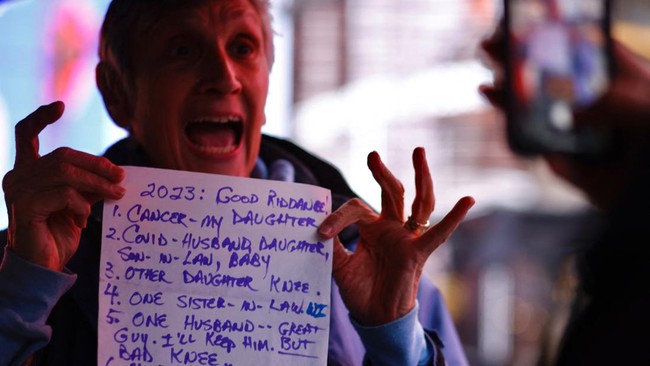 2023: GOOD RIDDANCE!
1. CANCER - MY DAUGHTER
2. COVID - HUSBAND, DAUGHTER,
SON-IN-LAW, BABY
3. OTHER DAUGHTER KNEE.
4. ONE SISTER-IN-LAW.
5. ONE HUSBAND -- GREAT
GUY. I'LL KEEP HIM. BUT
BAD KNEE